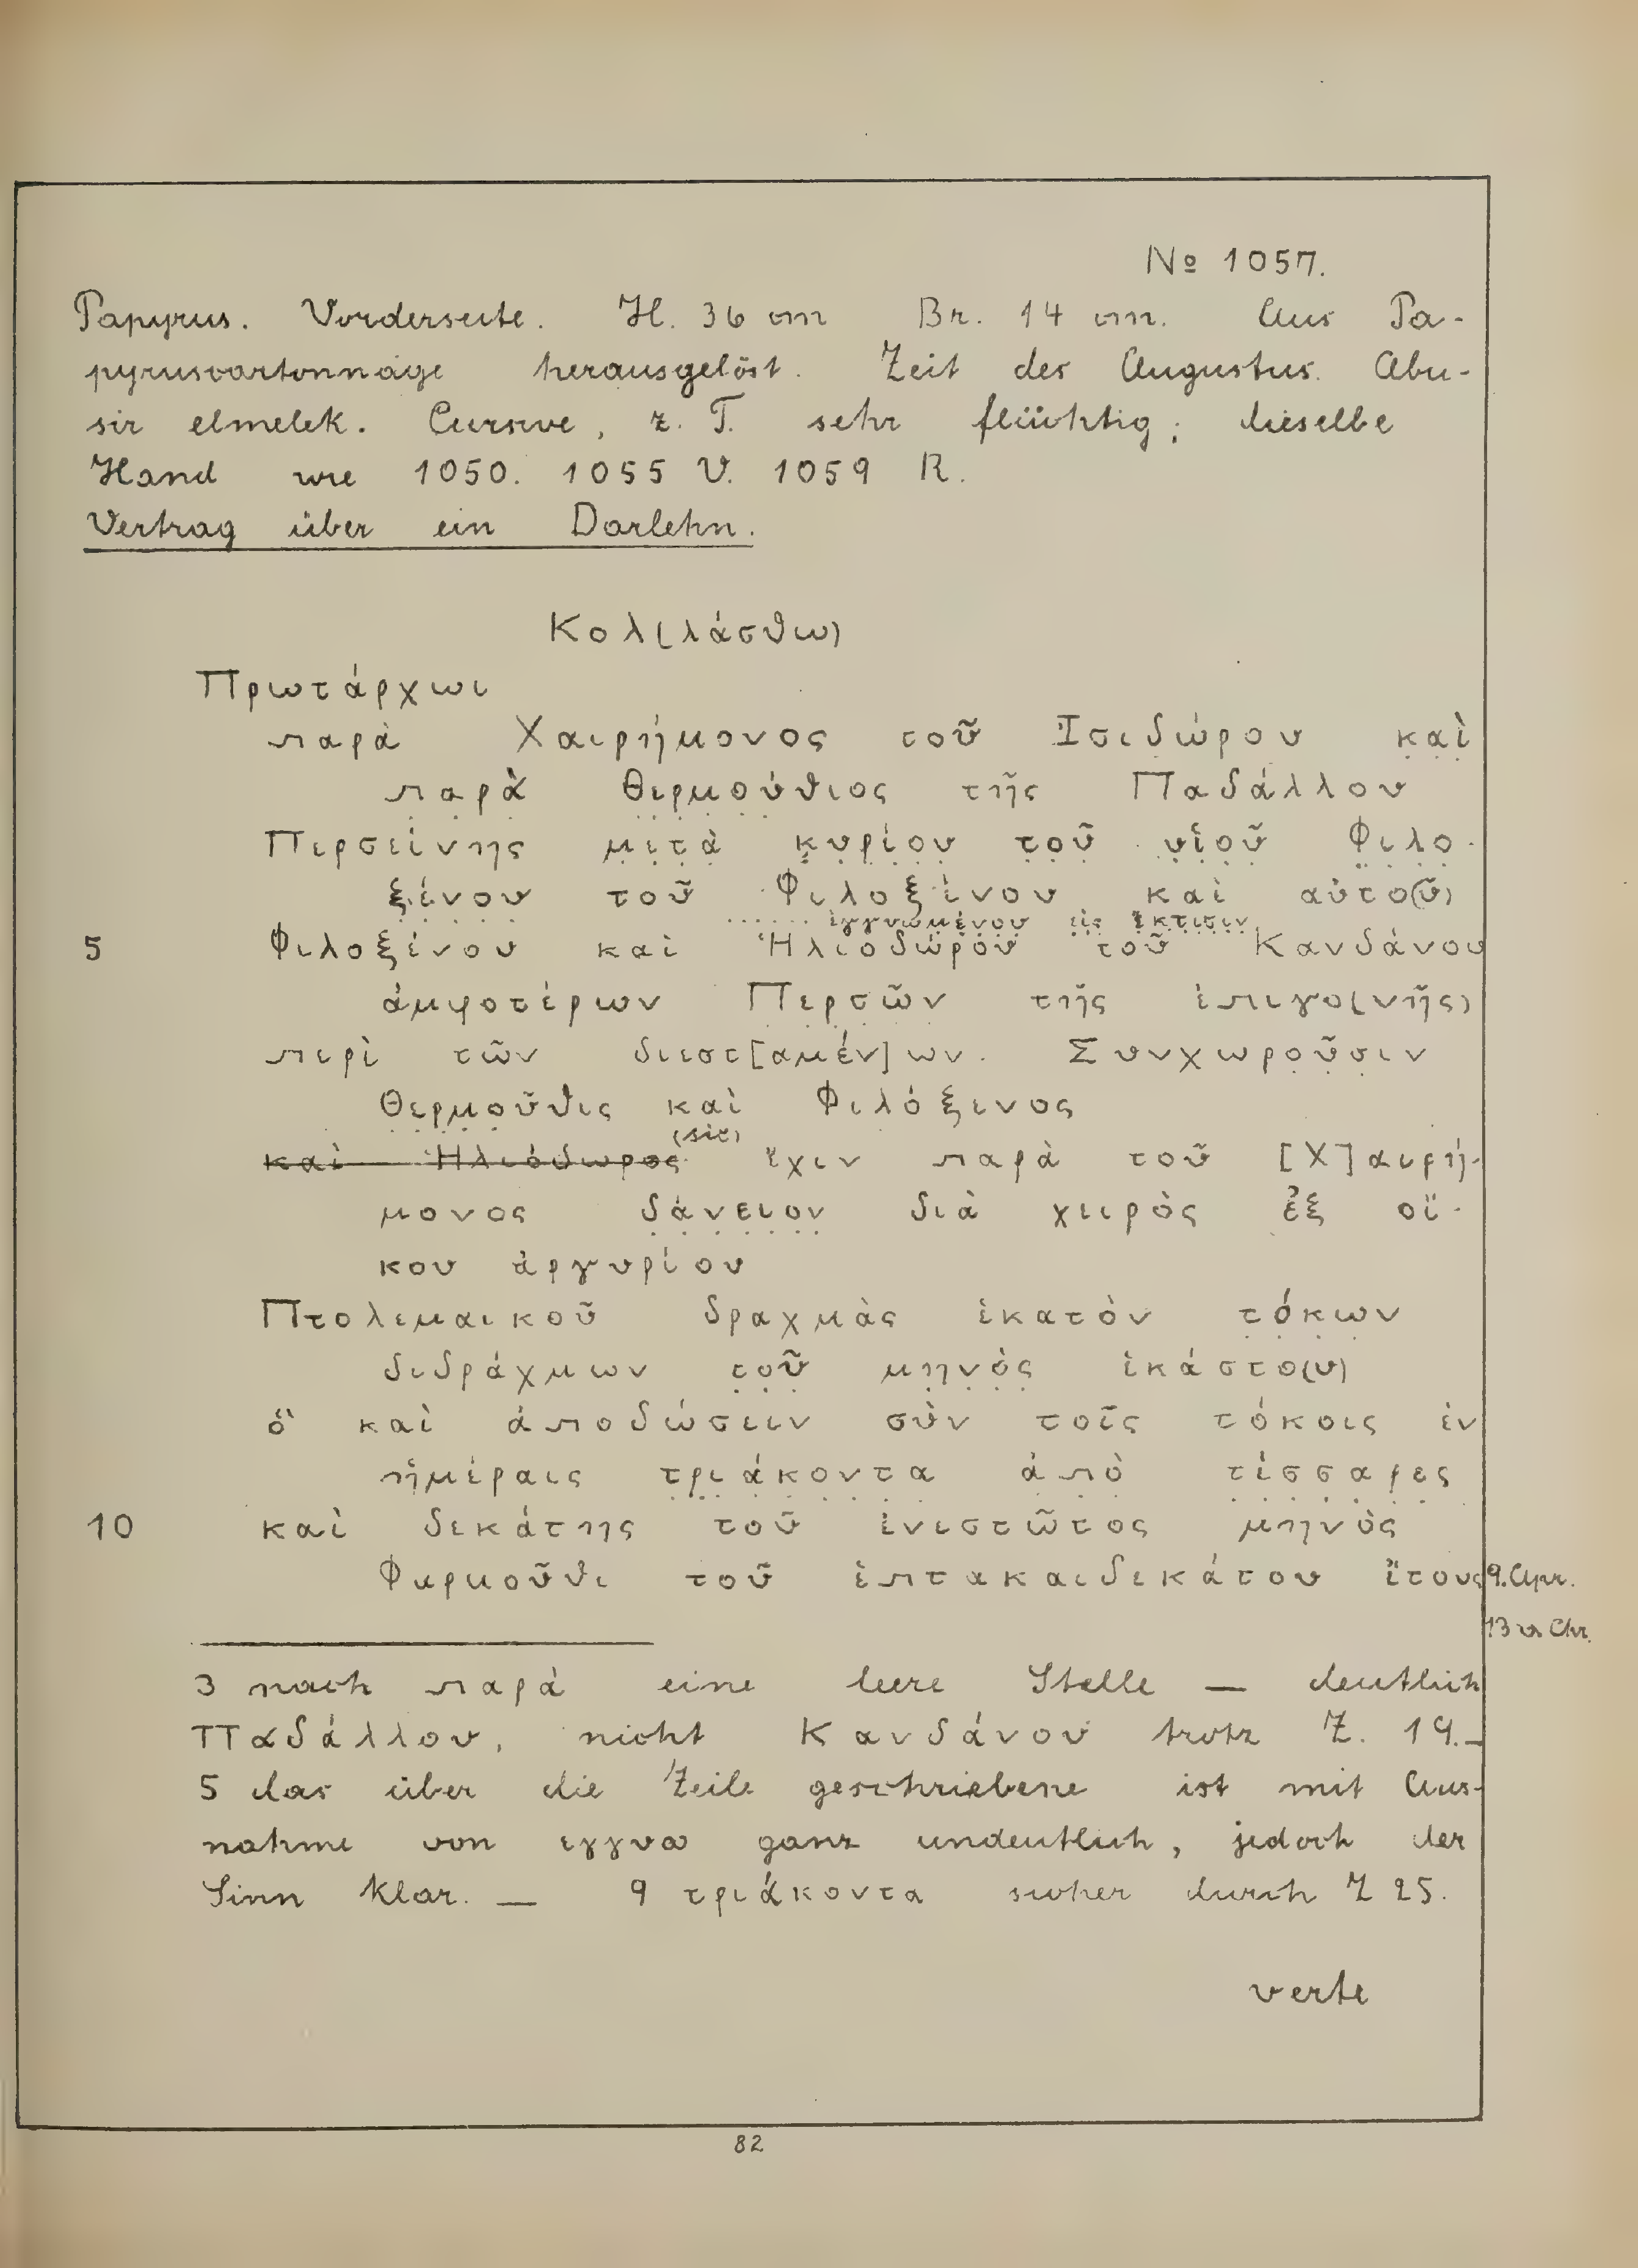 No 1057.
Papyrus. Vorderseite. H. 36 cm Br. 14 cm. Aus Pa-
pyruscartonnage herausgelöst. Zeit des Augustus. Abu-
sir elmelek. Cursive, z. T. sehr flüchtig; dieselbe
Hand wie 1050. 1055 V. 1059 R.
Vertrag über ein Darlehn.
Κολ(λάσθω)
Πρωτάρχωι
παρὰ Χαιρήμονος τοῦ Ἰσιδώρου κ̣α̣ὶ̣
π̣α̣ρ̣ὰ̣ Θ̣ε̣ρ̣μ̣ο̣ύ̣θιος τῆς Παδάλλου
Περσείνης μ̣ε̣τ̣ὰ̣ κ̣υ̣ρ̣ί̣ο̣υ̣ τ̣ο̣ῦ̣ υ̣ἱ̣ο̣ῦ̣ Φ̣ι̣λ̣ο̣-
ξ̣έ̣ν̣ο̣υ̣ τοῦ Φιλοξένου καὶ αὐτο(ῦ)
....... ἐ̣γ̣γ̣υ̣ω̣μ̣έ̣ν̣ο̣υ̣ ε̣ἰ̣ς̣ ἔ̣κ̣τ̣ι̣σ̣ι̣ν̣
5 Φιλοξένου καὶ Ἡλιοδώρου τοῦ Κανδάνου
ἀμφοτέρων Π̣ε̣ρ̣σ̣ῶ̣ν̣ τῆς ἐπιγο(νῆς)
περὶ τῶν διεστ[αμέν]ων. Συνχωρ̣ο̣ῦ̣σ̣ι̣ν
Θ̣ε̣ρ̣μ̣ο̣ῦ̣θις καὶ Φιλόξενος
(sic)
καὶ Ἡλιόδωρος ἔχιν παρὰ τοῦ [Χ]αιρή-
μονος δ̣ά̣ν̣ε̣ι̣ο̣ν̣ διὰ χειρὸς ἐξ οἴ-
κου ἀργυρίου
Πτολεμαικοῦ δραχμὰς ἑκατὸν τ̣ό̣κ̣ω̣ν
διδράχμων τ̣ο̣ῦ̣ μ̣η̣ν̣ὸ̣ς̣ ἑκάστο(υ)
ὃ καὶ ἀποδώσειν σὺν τοῖς τόκοις ἐν
ἡμέραις τ̣ρ̣ι̣ά̣κ̣ο̣ν̣τ̣α̣ ἀ̣π̣ὸ̣ τ̣έ̣σ̣σ̣α̣ρ̣ε̣ς̣
10 καὶ δεκάτης τοῦ ἐνεστῶτος μηνὸς
Φαρμοῦθι τοῦ ἑπτακαιδεκάτου ἔτους 9. Apr.
13 v. Chr.
3 nach παρὰ eine leere Stelle — deutlich
Παδάλλου, nicht Κανδάνου trotz Z. 19. —
5 das über die Zeile geschriebene ist mit Aus-
nahme von εγγυω ganz undeutlich, jedoch der
Sinn klar. — 9 τριάκοντα sicher durch Z 25.
verte
82